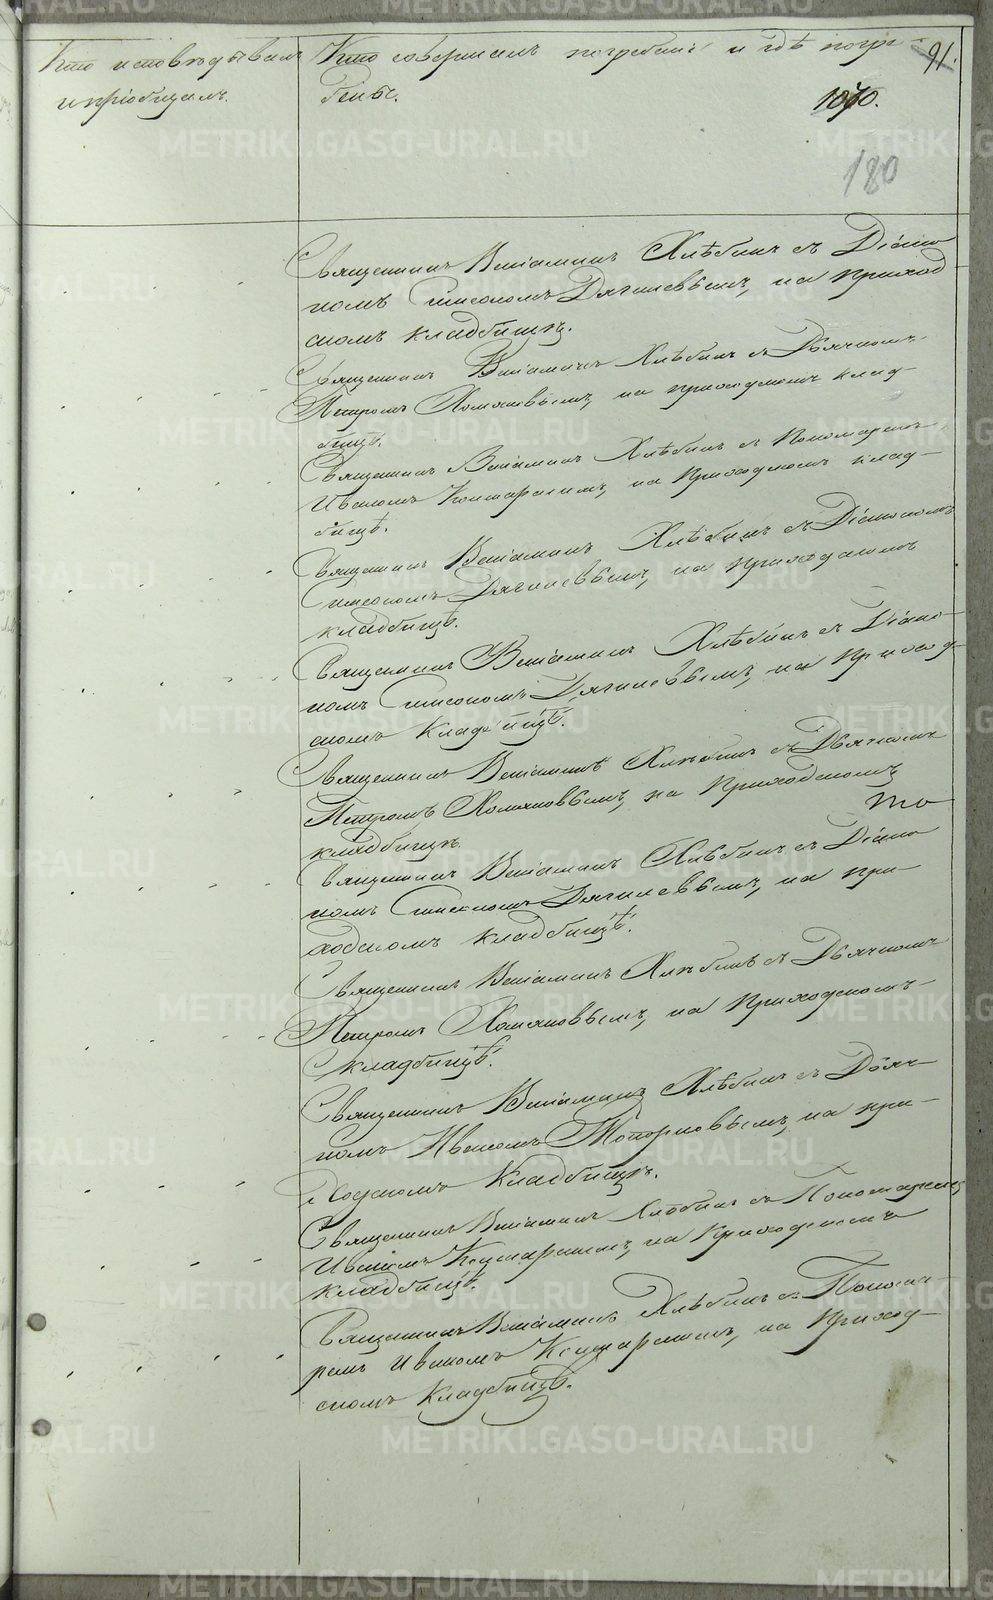 Кто исповѣдывалъ
и пріобщалъ.
Кто совершалъ погребеніе и гдѣ погре-
бены.
91.
1070.
180
Священникъ Веніаминъ Хлѣбинъ съ Діако
номъ Симеономъ Дягилевымъ, на приход
скомъ кладбищѣ.
Священникъ Веніаминъ Хлѣбинъ съ Дьячкомъ
Петромъ Хомяковымъ, на приходскомъ клад-
бищѣ.
Священникъ Веніаминъ Хлѣбинъ съ Пономаремъ
Иваномъ на Приходскомъ клад-
бищѣ.
Священникъ Веніаминъ Хлѣбинъ съ Діакономъ
Симеономъ Дягилевымъ, на Приходскомъ
кладбищѣ.
Священникъ Веніаминъ Хлѣбинъ съ Діако
номъ Симеономъ Дягилевымъ, на Приход
скомъ Кладбищѣ.
Священникъ Веніаминъ Хлѣбинъ съ Дьячкомъ
Петромъ Хомяковымъ, на Приходскомъ
кладбищѣ.
то
Священникъ Веніаминъ Хлѣбинъ съ Діако
номъ Симеономъ Дягилевымъ, на при-
ходскомъ кладбищѣ.
Священникъ Веніаминъ Хлѣбинъ съ Дьячкомъ
Петромъ Хомяковымъ, на Приходскомъ
Кладбищѣ.
Священникъ Веніаминъ Хлѣбинъ съ Дьяч
комъ Иваномъ Топорковымъ, на при-
ходскомъ Кладбищѣ.
Священникъ Веніаминъ Хлѣбинъ съ Пономаремъ
Иваномъ на Приходскомъ
кладбищѣ.
Священникъ Веніаминъ Хлѣбинъ съ Понома
ремъ Иваномъ на Приход-
скомъ Кладбищѣ.
METRIKI.GASO-URAL.RU